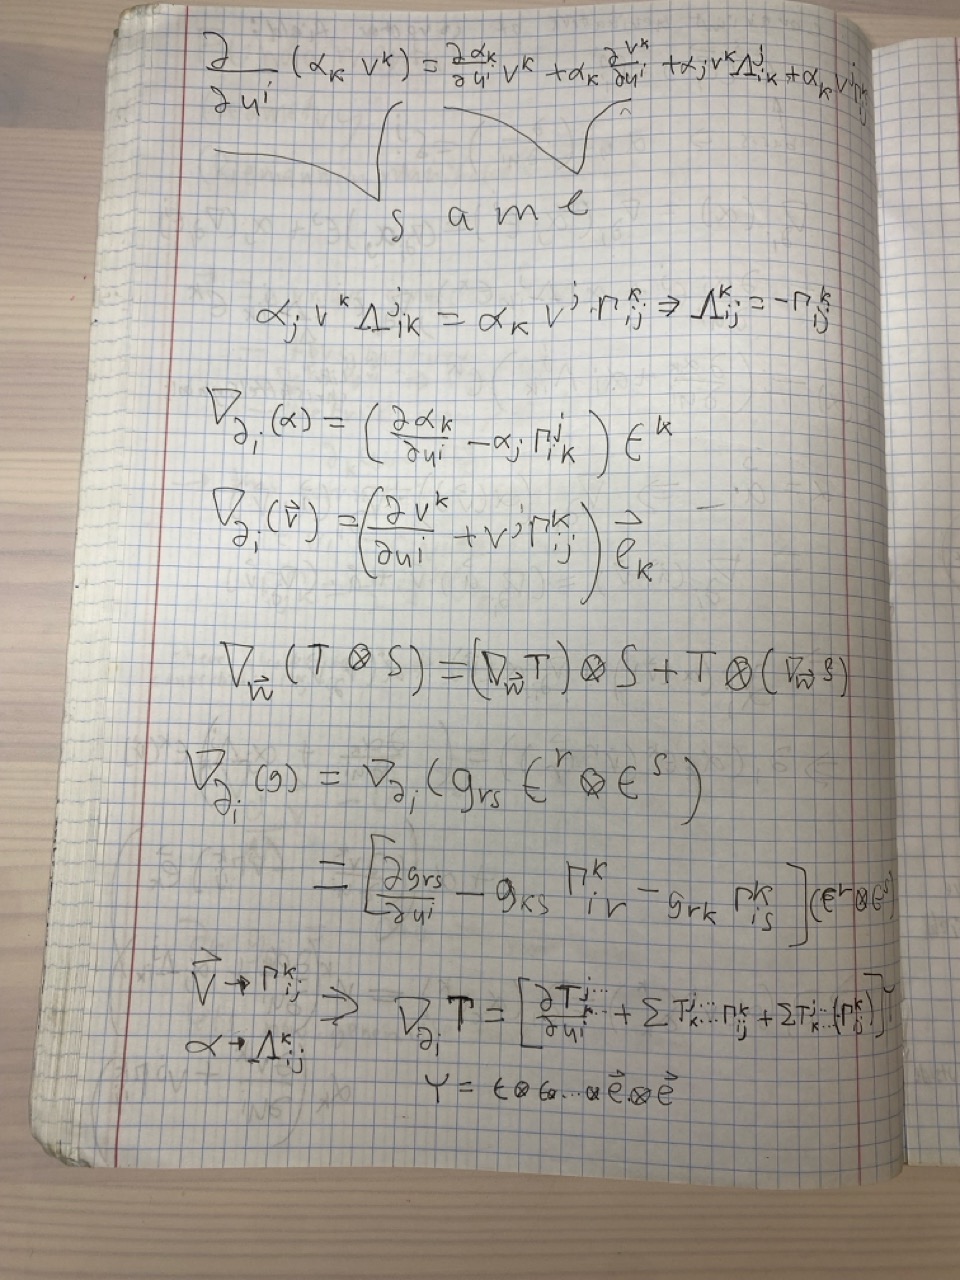 ∂/∂uⁱ (αₖ vᵏ) = ∂αₖ/∂uⁱ vᵏ + αₖ ∂vᵏ/∂uⁱ + αⱼ vᵏ Λʲᵢₖ + αₖ vʲ Γᵏᵢⱼ
same
αⱼ vᵏ Λʲᵢₖ = αₖ vʲ Γᵏᵢⱼ ⇒ Λᵏᵢⱼ = -Γᵏᵢⱼ
∇_∂ᵢ(α) = (∂αₖ/∂uⁱ - αⱼ Γʲᵢₖ) ϵᵏ
∇_∂ᵢ(v⃗) = (∂vᵏ/∂uⁱ + vʲ Γᵏᵢⱼ) e⃗ₖ
∇_w⃗ (T ⊗ S) = (∇_w⃗ T) ⊗ S + T ⊗ (∇_w⃗ S)
∇_∂ᵢ(g) = ∇_∂ᵢ(g_rs ϵʳ ⊗ ϵˢ)
= [∂g_rs/∂uⁱ - g_ks Γᵏᵢᵣ - g_rk Γᵏᵢₛ] (ϵʳ ⊗ ϵˢ)
v⃗ → Γᵏᵢⱼ
α → Λᵏᵢⱼ
⇒ ∇_∂ᵢ T = [∂Tʲ···ₖ···/∂uⁱ + Σ Tʲ···ₖ··· Γᵏᵢⱼ + Σ Tʲ··ₖ·· (-Γᵏᵢⱼ)] Y
Y = ϵ ⊗ ϵ ... ⊗ e⃗ ⊗ e⃗